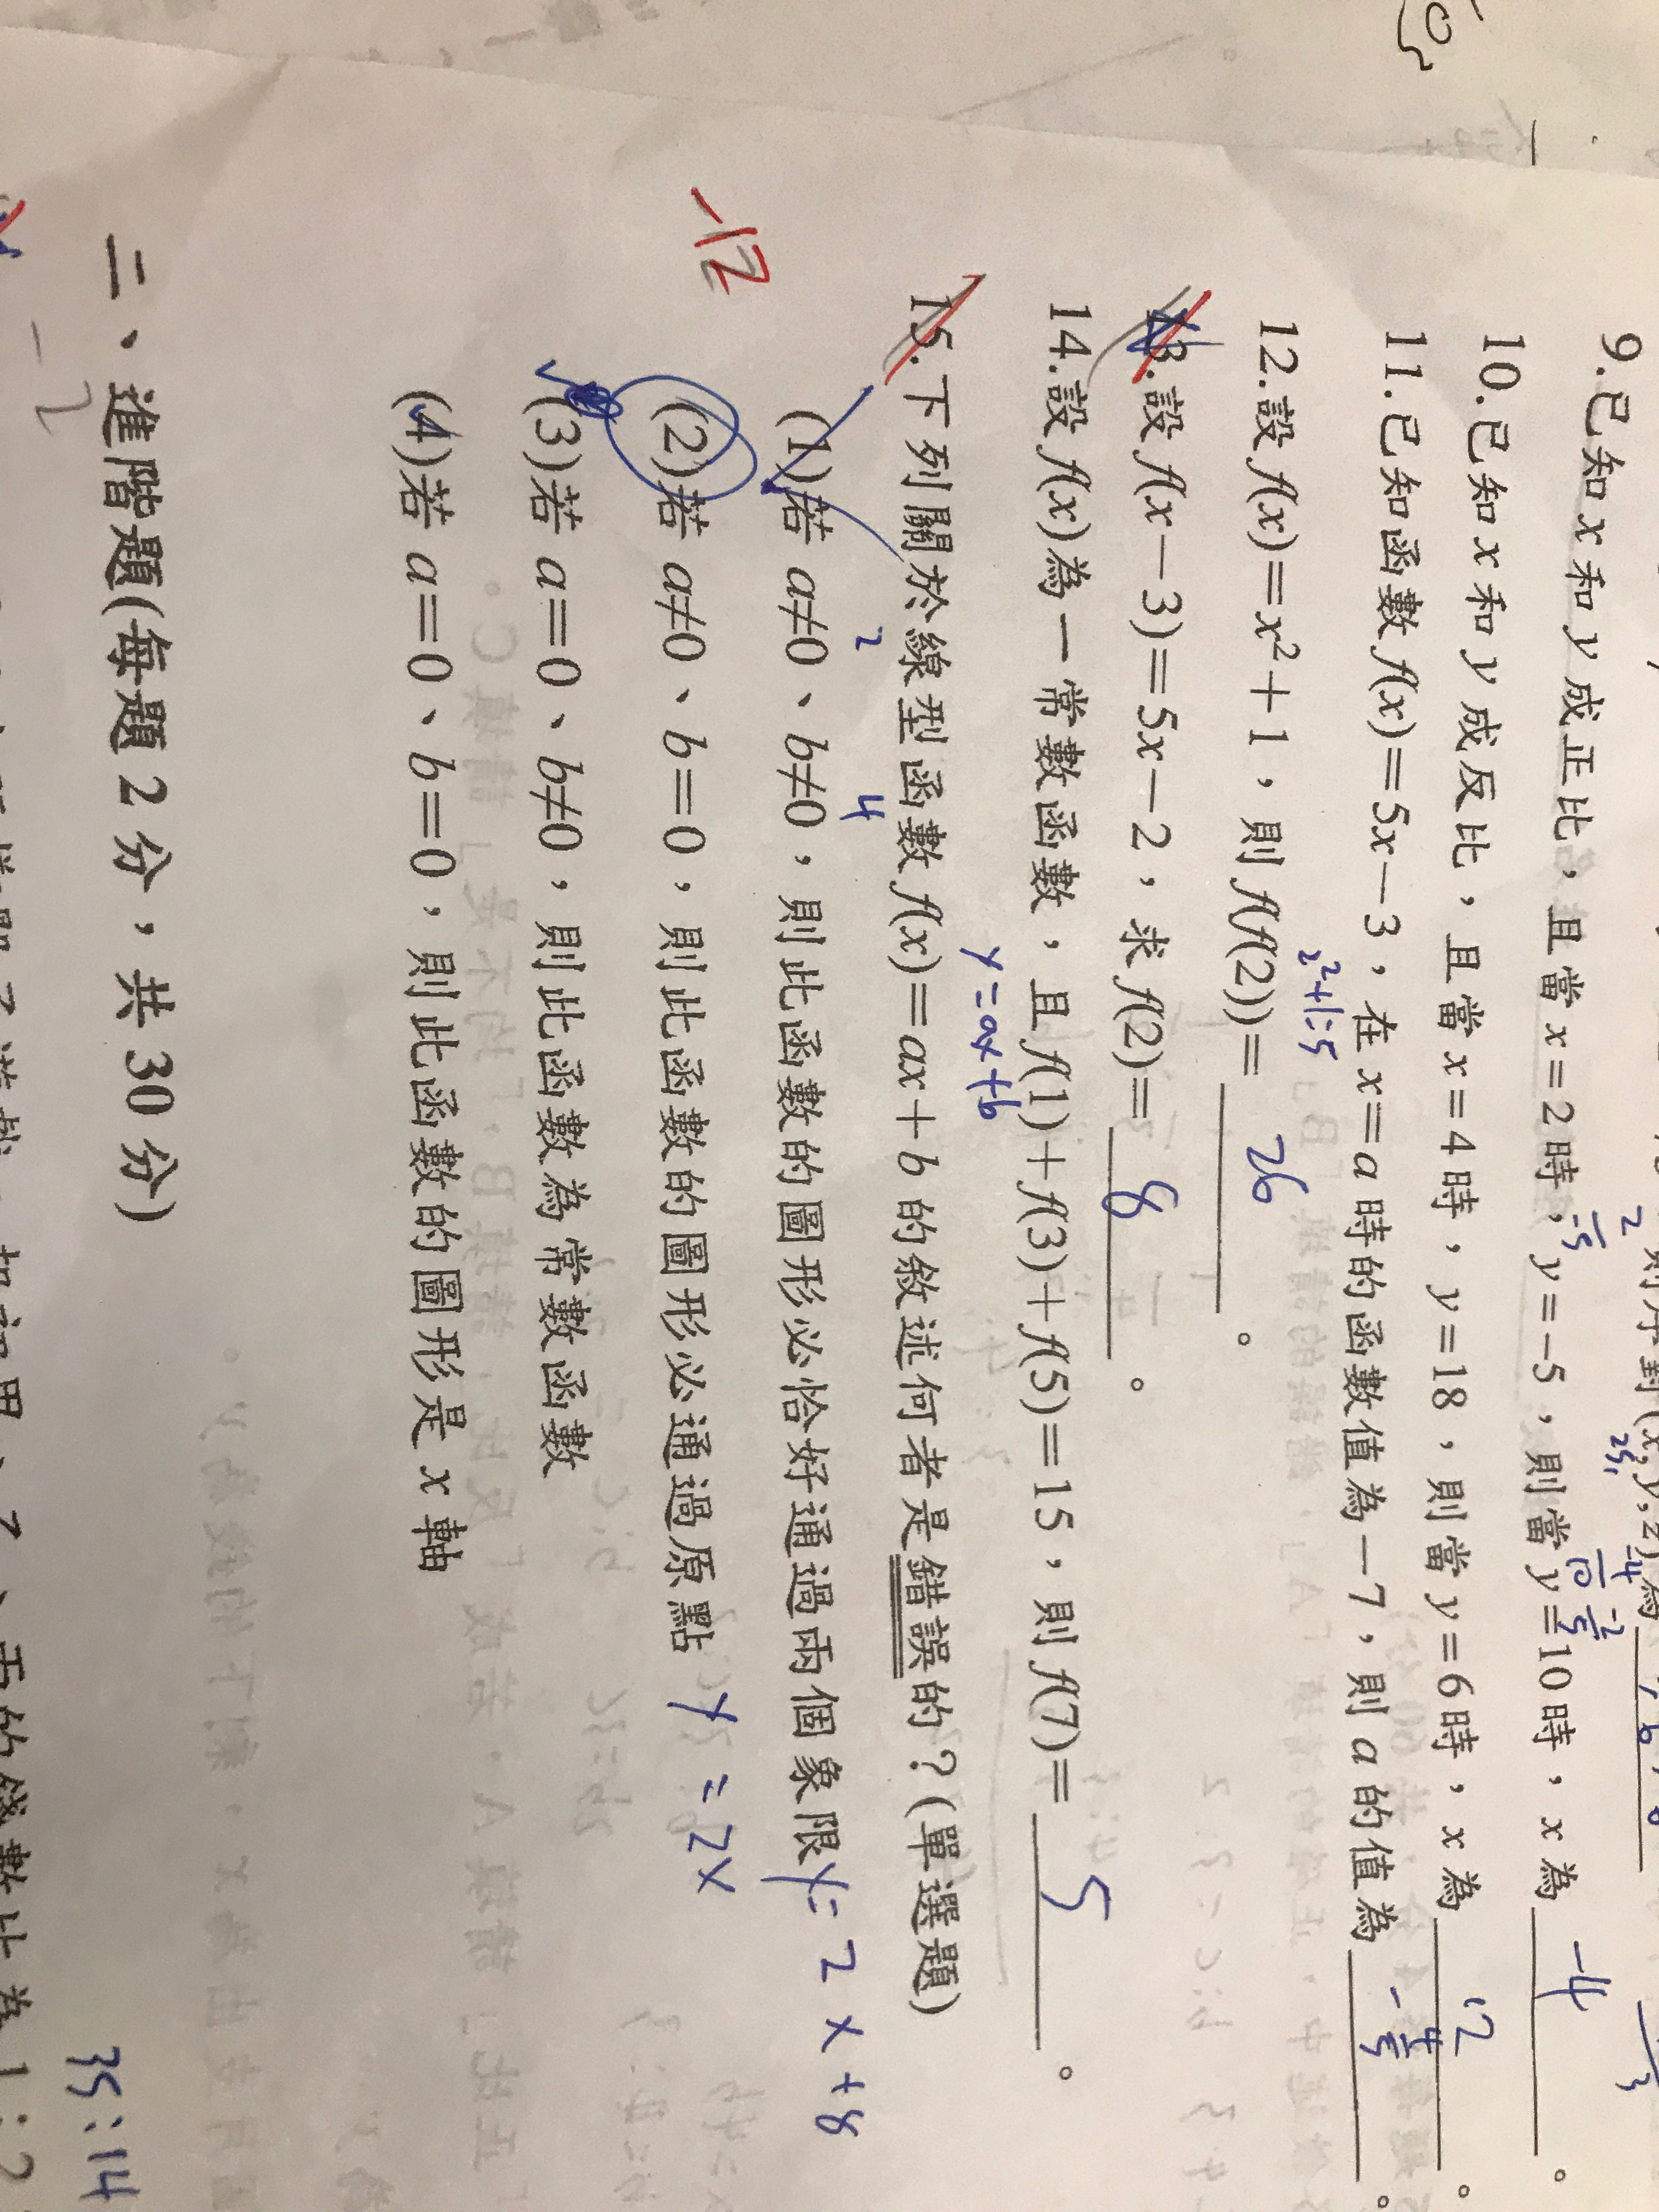 9.已知 x 和 y 成正比，且當 x=2 時，y=-5，則當 y=10 時，x 為 -4 。
10.已知 x 和 y 成反比，且當 x=4 時，y=18，則當 y=6 時，x 為 12 。
11.已知函數 f(x)=5x-3，在 x=a 時的函數值為-7，則 a 的值為 -4/5 。
2²+1=5
12.設 f(x)=x²+1，則 f(f(2))= 26 。
13.設 f(x-3)=5x-2，求 f(2)= 8 。
14.設 f(x)為一常數函數，且 f(1)+f(3)+f(5)=15，則 f(7)= 5 。
y=ax+b
15.下列關於線型函數 f(x)=ax+b 的敘述何者是錯誤的？(單選題)
2 4
(1)若 a≠0、b≠0，則此函數的圖形必恰好通過兩個象限 y=2x+8
-12
(2)若 a≠0、b=0，則此函數的圖形必通過原點 y=2x
(3)若 a=0、b≠0，則此函數為常數函數
(4)若 a=0、b=0，則此函數的圖形是 x 軸
二、進階題(每題 2 分，共 30 分)
35:14